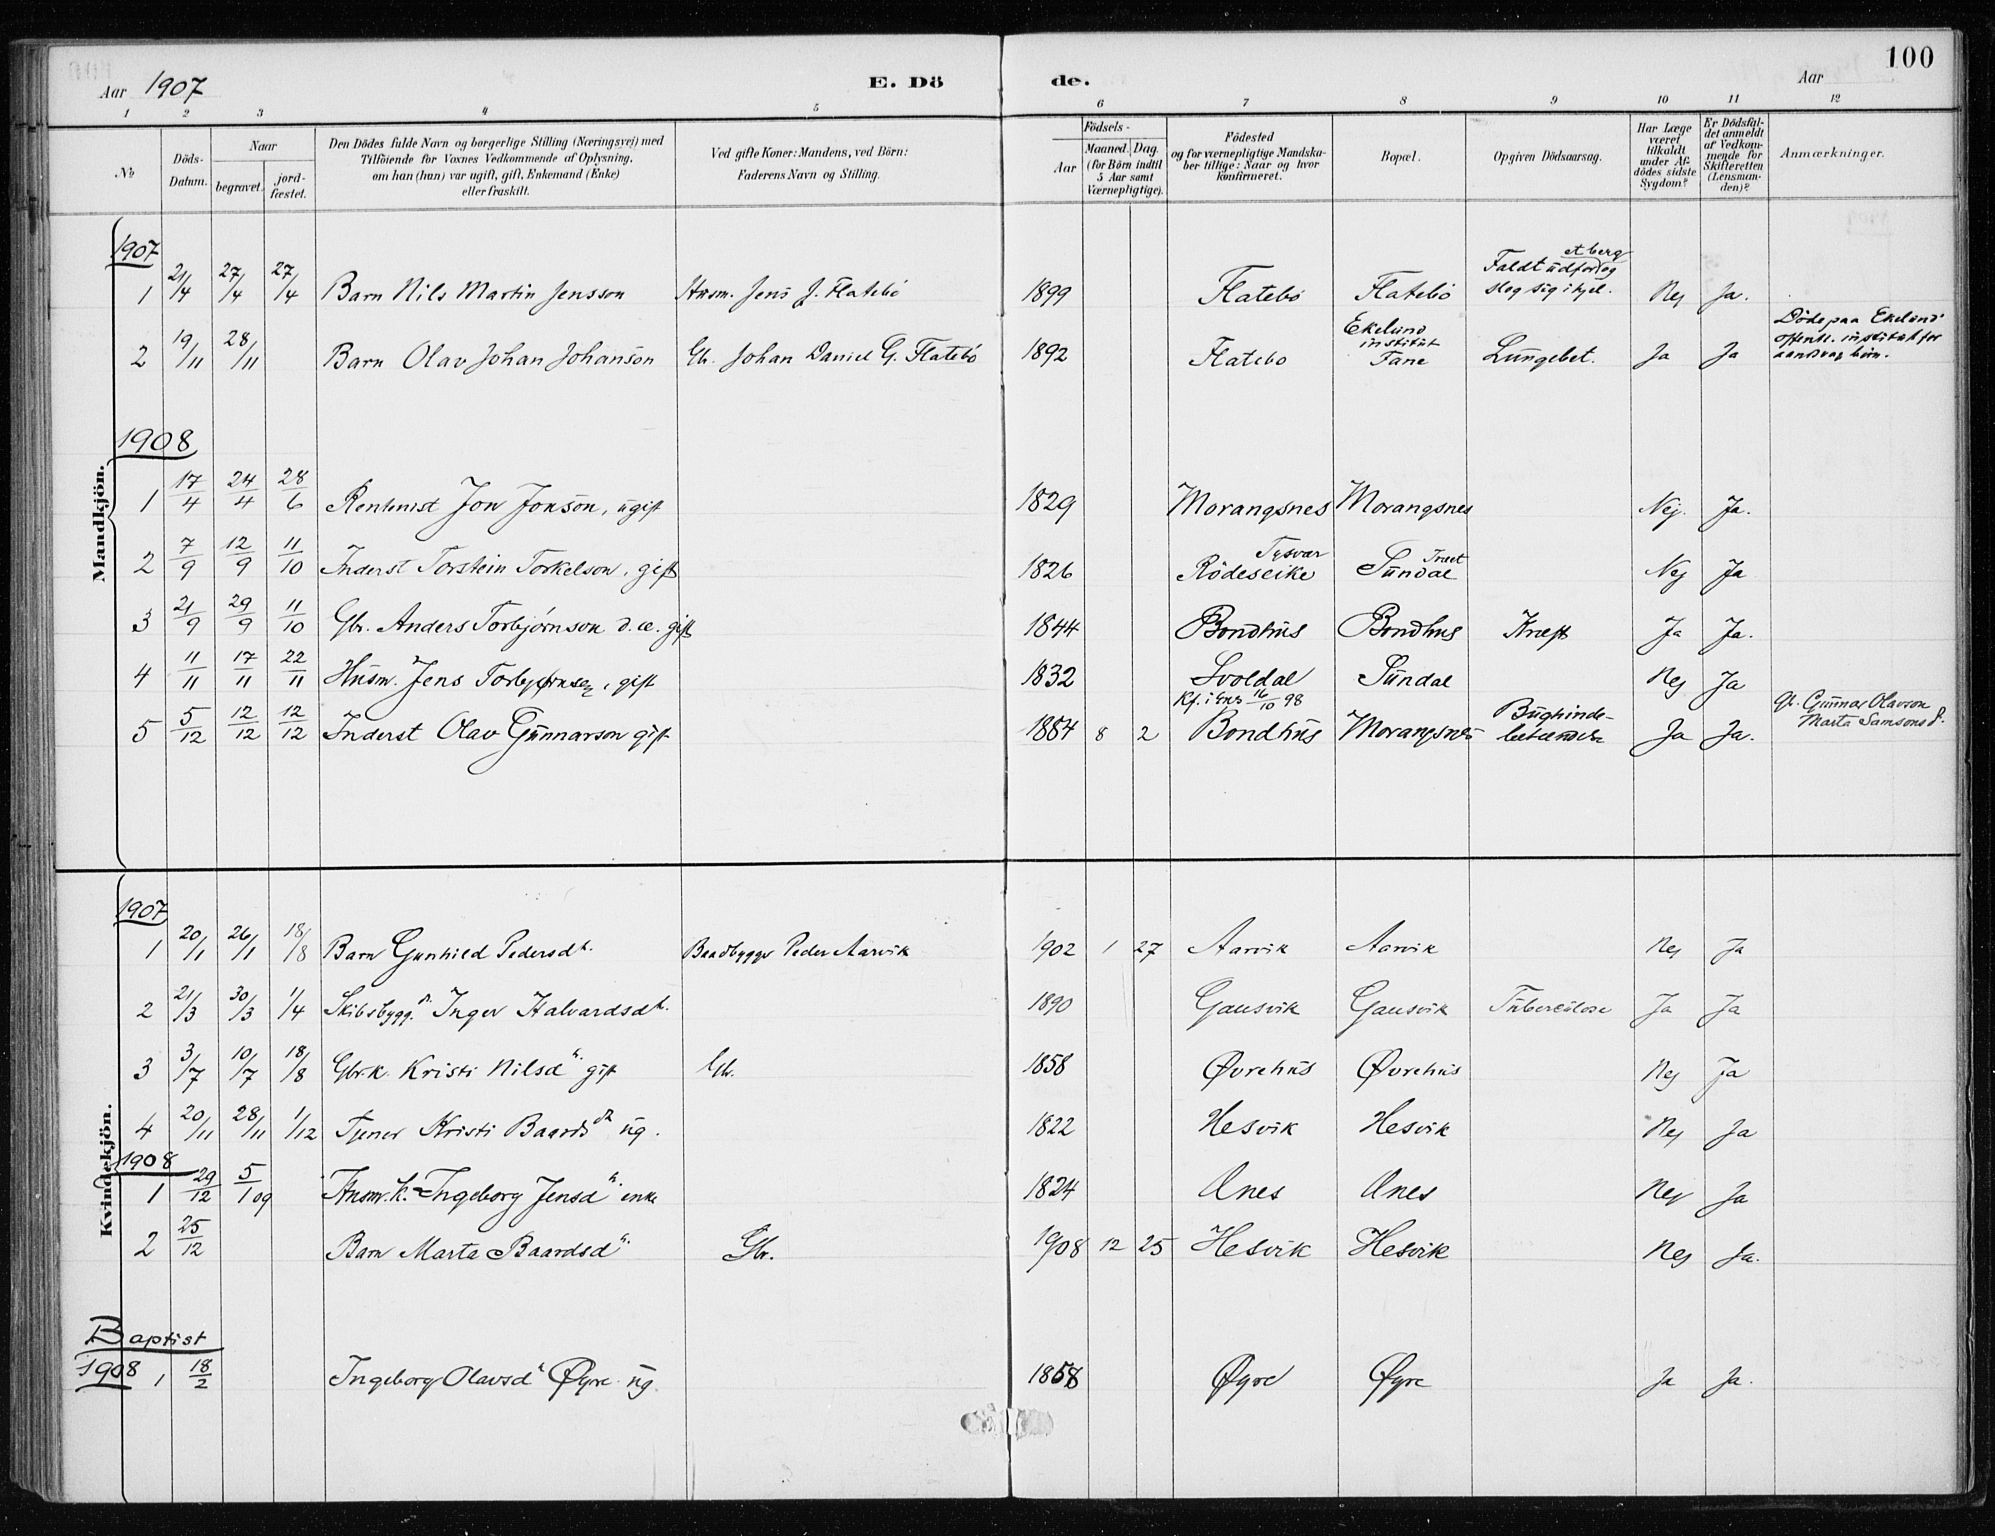 100
Aar 1907 E. Dö de. Aar
1 2 3 4 5 6 7 8 9 10 11 12
No
Döds-Datum.
Naar
begravet.
jord-fæstet.
Den Dödes fulde Navn og borgerlige Stilling (Næringsvei) med
Tilföiende for Voxnes Vedkommende af Oplysning,
om han (hun) var ugift, gift, Enkemand (Enke)
eller fraskilt.
Ved gifte Koner: Mandens, ved Börn:
Faderens Navn og Stilling.
Födsels-
Aar
Maaned. Dag.
(for Börn indtil
5 Aar samt
Værnepligtige).
Födested
og for værnepligtige Mandska-
ber tillige: Naar og hvor
konfirmeret.
Bopæl.
Opgiven Dödsaarsag.
Har Læge
været
tilkaldt
under Af-
dödes sidste
Sygdom?
Er Dödsfal-
det anmeldt
af Vedkom-
mende for
Skifteretten
(Lensman-
den)?
Anmærkninger.
Mandkjön.
1907
1 21/4 27/4 27/4 Barn Nils Martin Jensson Husm. Jens J. Flatebö 1899 Flatebö Flatebö Faldt udfor et berg og slog sig ihjel. Nej Ja.
2 19/11 28/11 Barn Olav Johan Johanson Gb. Johan Daniel G. Flatebö 1892 Flatebo Ekelund institut Fane Lungebet. Ja Ja Döde paa Ekelund offentl. institut for aandsv. börn.
1908
1 17/4 24/4 28/6 Rentenist Jon Jonson, ugift 1829 Morangsnes Morangsnes Nej. Ja.
2 7/9 12/9 11/10 Inderst Torstein Torkelson, gift 1826 Tysvær Rödeseike Sundal Træet Nej Ja
3 21/9 29/9 11/10 Gbr. Anders Torbjørnson d.æ. gift 1844 Bondhus Bondhus Kræft Ja Ja.
4 11/11 17/11 22/11 Husm. Jens Torbjørnson, gift 1832 Svoldal Sundal Nej Ja
5 5/12 12/12 12/12 Inderst Olav Gunnarson gift 1884 8 2 Kf. i Enæs 16/10 98 Bondhus Morangsnes Bughinde-betændelse Ja Ja. Gb. Gunnar Olavson Marta Samsonsd.
Kvindekjön.
1907
1 20/1 26/1 18/8 Barn Gunhild Pedersdt. Baadbygger Peder Aarvik 1902 1 27 Aarvik Aarvik Nej Ja
2 21/3 30/3 1/4 Skibsbygg.d. Inger Halvardsdt. 1890 Gausvik Gausvik Tuberculose Ja Ja
3 3/7 10/7 18/8 Gbr.k. Kristi Nilsd. gift Gbr. 1858 Øvrehus Øvrehus Nej Ja
4 20/11 28/11 1/12 Tjener Kristi Baardsd. ug. 1822 Hesvik Hesvik Nej Ja
1908
1 29/12 5/1 09 Husm.k. Ingeborg Jensd. enke 1824 Ænes Ænes Nej Ja
2 25/12 Barn Marta Baardsd. Gbr. 1908 12 25 Hesvik Hesvik Nej Ja.
Baptist
1908 1 18/2 Ingeborg Olavsd. Øyre ug. 1858 Øyre Øyre Ja Ja.